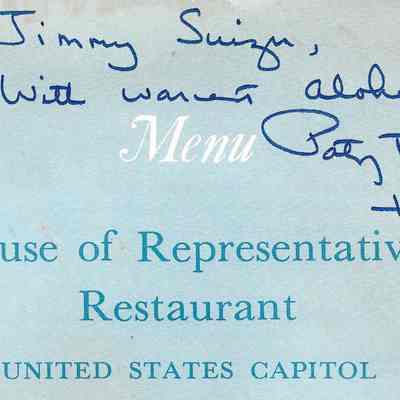 Jimmy
With warmest aloha
Menu
Patsy
use of Representativ
Restaurant
UNITED STATES CAPITOL